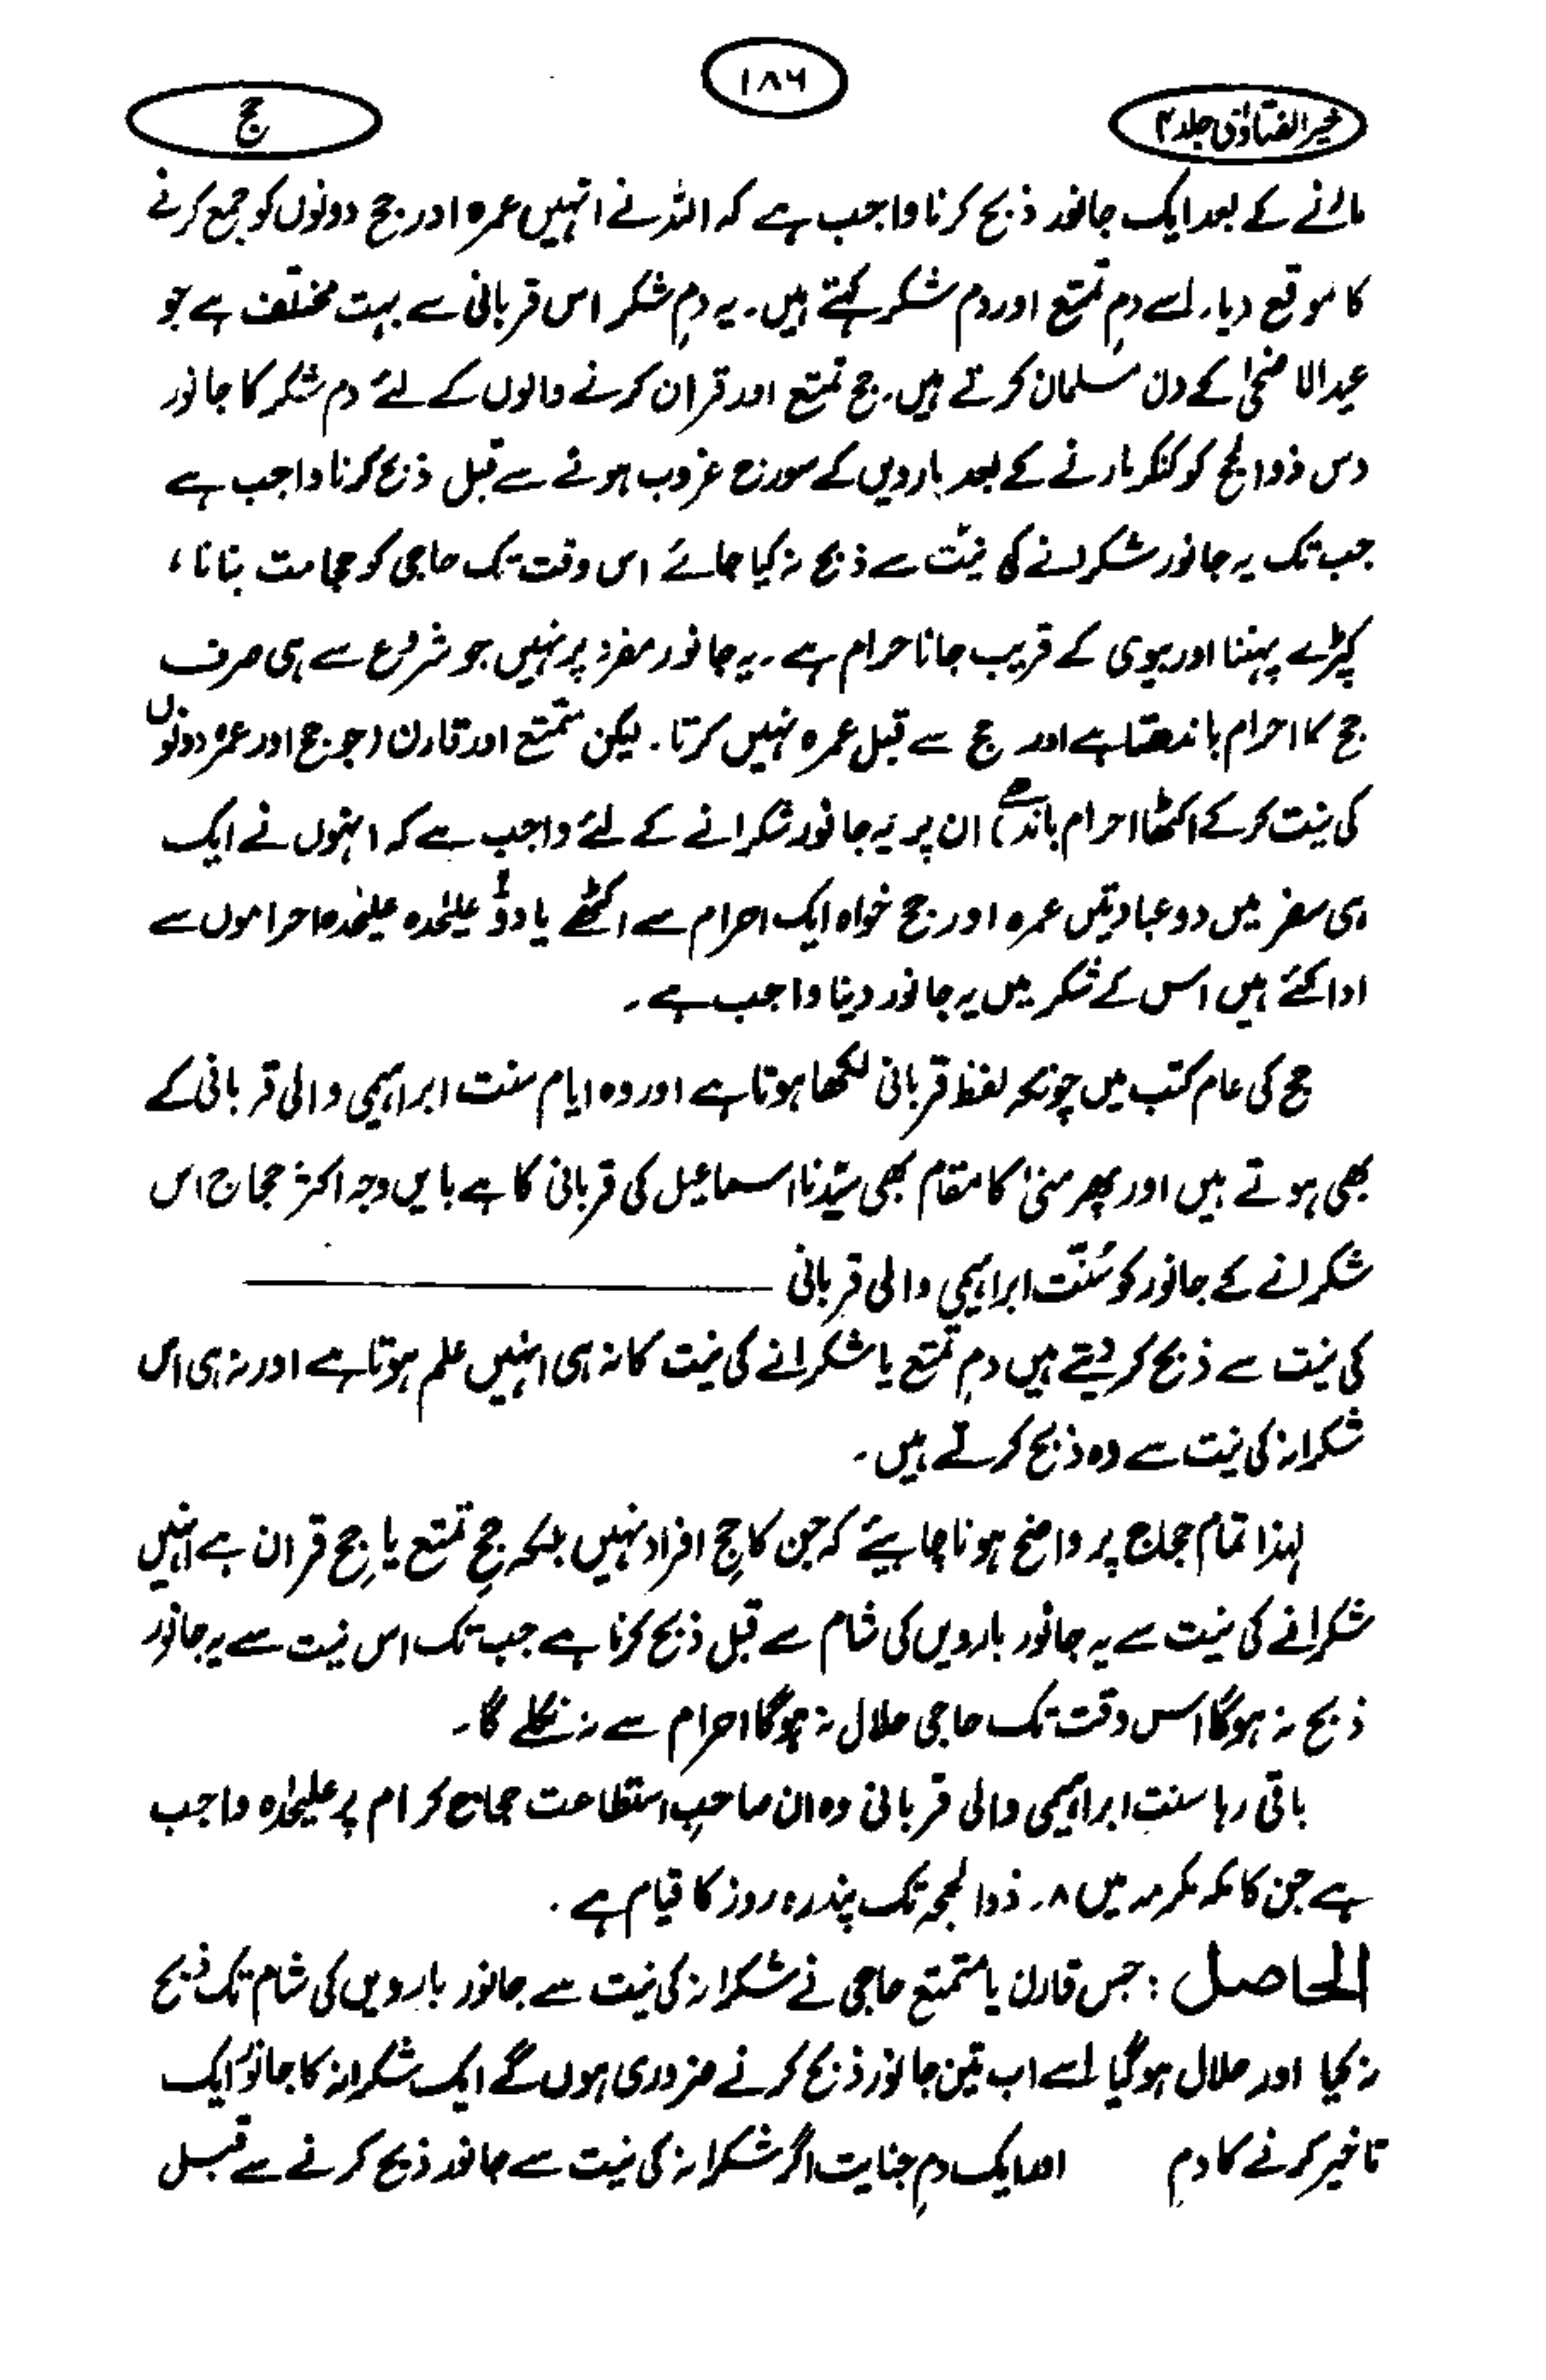 ۱۸۶
خیر الفتاوٰی جلد ۴
حج
مارنے کے بعد ایک جانور ذبح کرنا واجب ہے کہ اللہ نے انہیں عمرہ اور حج دونوں کو جمع کرنے
کا موقع دیا۔ اسے دمِ تمتع اور دم شکر کہتے ہیں۔ یہ دمِ شکر اس قربانی سے بہت مختلف ہے جو
عید الاضحیٰ کے دن مسلمان کرتے ہیں۔ حج تمتع اور قران کرنے والوں کے لئے دم شکر کا جانور
دس ذوالحج کو کنکر مارنے کے بعد بارہویں کے سورج غروب ہونے سے قبل ذبح کرنا واجب ہے
جب تک یہ جانور شکرانے کی نیّت سے ذبح نہ کیا جائے اس وقت تک حاجی کو حجامت بنانا،
کپڑے پہننا اور بیوی کے قریب جانا حرام ہے۔ یہ جانور مفرد پر نہیں جو شروع سے ہی صرف
حج کا احرام باندھتا ہے اور حج سے قبل عمرہ نہیں کرتا۔ لیکن متمتع اور قارن (جو حج اور عمرہ دونوں
کی نیت کر کے اکٹھا احرام باندھے) ان پر یہ جانور شکرانے کے لئے واجب ہے کہ انہوں نے ایک
ہی سفر میں دو عبادتیں عمرہ اور حج خواہ ایک احرام سے اکٹھے یا دو علیٰحدہ علیٰحدہ احراموں سے
ادا کئے ہیں اس کے شکر میں یہ جانور دینا واجب ہے۔
حج کی عام کتب میں چونکہ لفظ قربانی لکھا ہوتا ہے اور وہ ایام سنت ابراہیمی والی قربانی کے
بھی ہوتے ہیں اور پھر منیٰ کا مقام بھی سیّدنا اسماعیل کی قربانی کا ہے بایں وجہ اکثر حجاج اس
شکرانے کے جانور کو سُنّت ابراہیمی والی قربانی
کی نیت سے ذبح کر دیتے ہیں دمِ تمتع یا شکرانے کی نیت کا نہ ہی انہیں علم ہوتا ہے اور نہ ہی اس
شکرانہ کی نیت سے وہ ذبح کرتے ہیں۔
لہٰذا تمام حجاج پر واضح ہونا چاہیئے کہ جن کا حج افراد نہیں بلکہ حجِ تمتع یا حجِ قران ہے انہیں
شکرانے کی نیت سے یہ جانور بارہویں کی شام سے قبل ذبح کرنا ہے جب تک اس نیت سے یہ جانور
ذبح نہ ہوگا اس وقت تک حاجی حلال نہ ہوگا احرام سے نہ نکلے گا۔
باقی رہا سنت ابراہیمی والی قربانی وہ ان صاحبِ استطاعت حجاج کرام پر علیٰحدہ واجب
ہے جن کا مکہ مکرمہ میں ۸۔ ذوالحجہ تک پندرہ روز کا قیام ہے۔
الحاصل : جس قارن یا متمتع حاجی نے شکرانہ کی نیت سے جانور بارہویں کی شام تک ذبح
نہ کیا اور حلال ہوگیا اسے اب تین جانور ذبح کرنے ضروری ہوں گے ایک شکرانہ کا جانور، ایک
تاخیر کرنے کا دمِ اور ایک دمِ جنایت اگر شکرانہ کی نیت سے جانور ذبح کرنے سے قبل